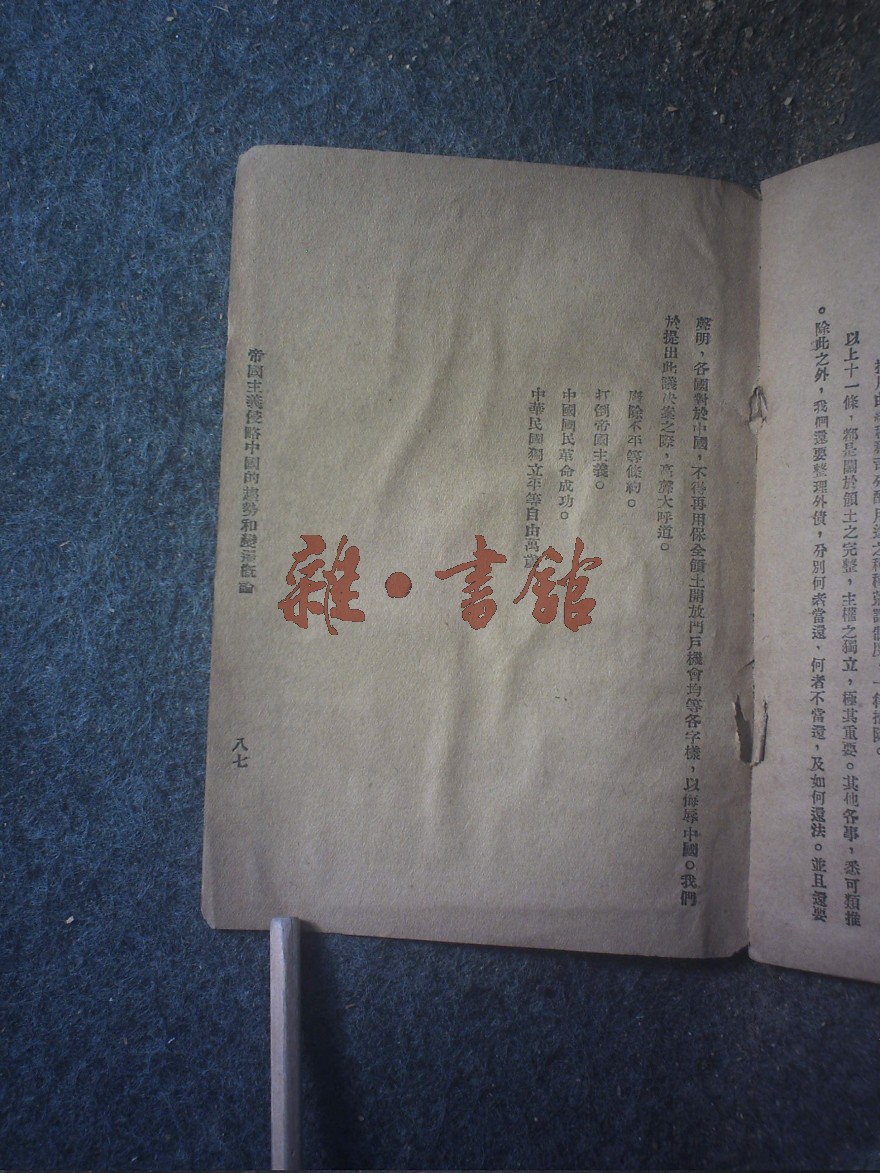 以上十一條，都是關於領土之完整，主權之獨立，極其重要。其他各事，悉可類推
。除此之外，我們還要整理外債，分別何者當還、何者不當還，及如何還法。並且還要
聲明，各國對於中國，不得再用保全領土開放門戶機會均等各字樣，以侮辱中國。我們
於提出此議決案之際，高聲大呼道。
廢除不平等條約。
打倒帝國主義。
中國國民革命成功。
中華民國獨立平等自由萬歲
帝國主義侵略中國的趨勢和變遷概論
八七
雜·書館